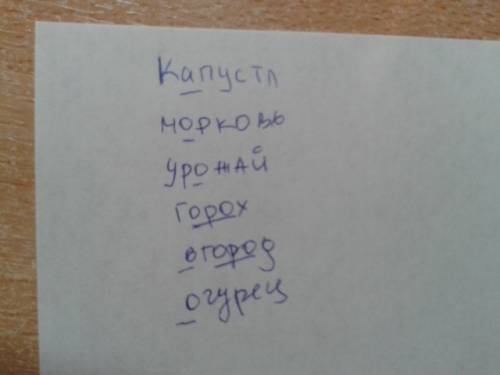 Капуста
морковь
урожай
горох
огород
огурец